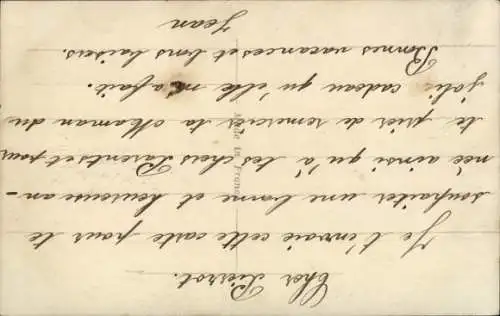 Cher Pierrot.
Je t'envoie cette carte pour te
souhaiter une bonne et heureuse an-
née ainsi qu'à tes chers Parents et pour
te prier de remercier ta Maman du
joli cadeau qu'elle m'a fait.
Bonnes vacances et bons baisers.
Jean
Made in France